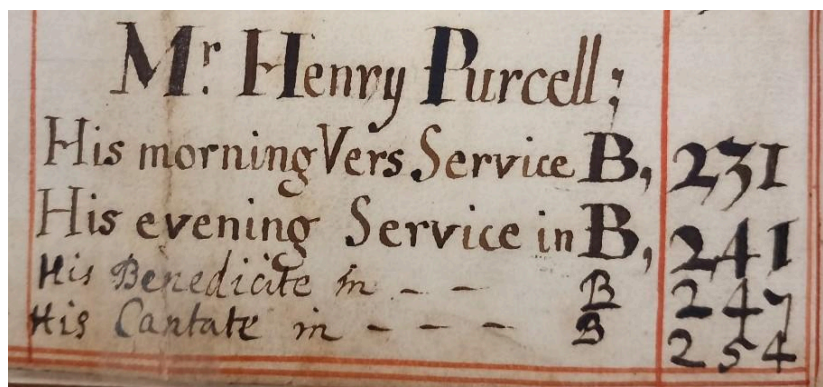 Mr. Henry Purcell;
His morning Vers Service B, 231
His evening Service in B, 241
His Benedicite in - - B 247
His Cantate in - - - B 254